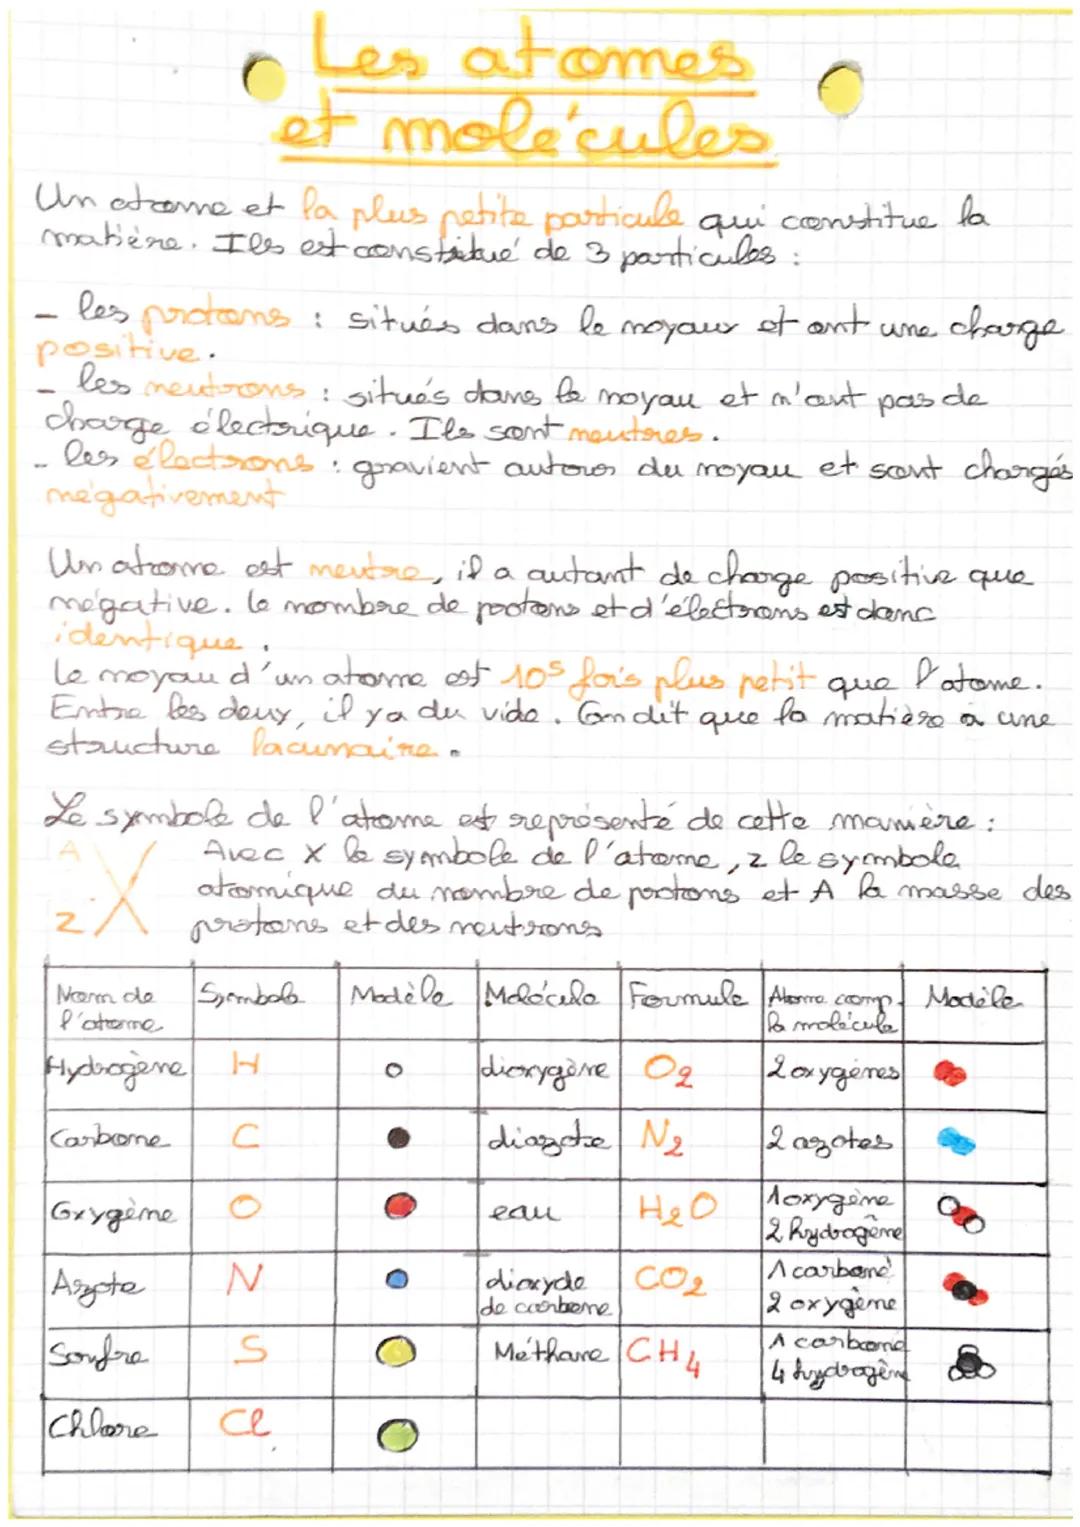 Les atomes
et molécules
Un atome et la plus petite particule qui constitue la
matière. Ils est constitué de 3 particules :
- les protons : situés dans le noyaux et ont une charge
positive.
- les neutrons : situés dans le noyau et n'ont pas de
charge électrique. Ils sont neutres.
- les électrons : gravient autour du noyau et sont chargés
négativement
Un atome est neutre, il a autant de charge positive que
négative. Le nombre de protons et d'électrons est donc
identique.
Le noyau d'un atome est 10⁵ fois plus petit que l'atome.
Entre les deux, il y a du vide. On dit que la matière a une
structure lacunaire.
Le symbole de l'atome est représenté de cette manière :
A Avec X le symbole de l'atome, z le symbole
X atomique du nombre de protons et A la masse des
Z protons et des neutrons
Nom de l'atome Symbole Modèle Molécule Formule Atome comp. la molécule Modèle
Hydrogène H dioxygène O₂ 2 oxygènes
Carbone C diazote N₂ 2 azotes
Oxygène O eau H₂O 1 oxygène 2 hydrogène
Azote N dioxyde de carbone CO₂ 1 carbone 2 oxygène
Soufre S Méthane CH₄ 1 carbone 4 hydrogèn
Chlore Cl